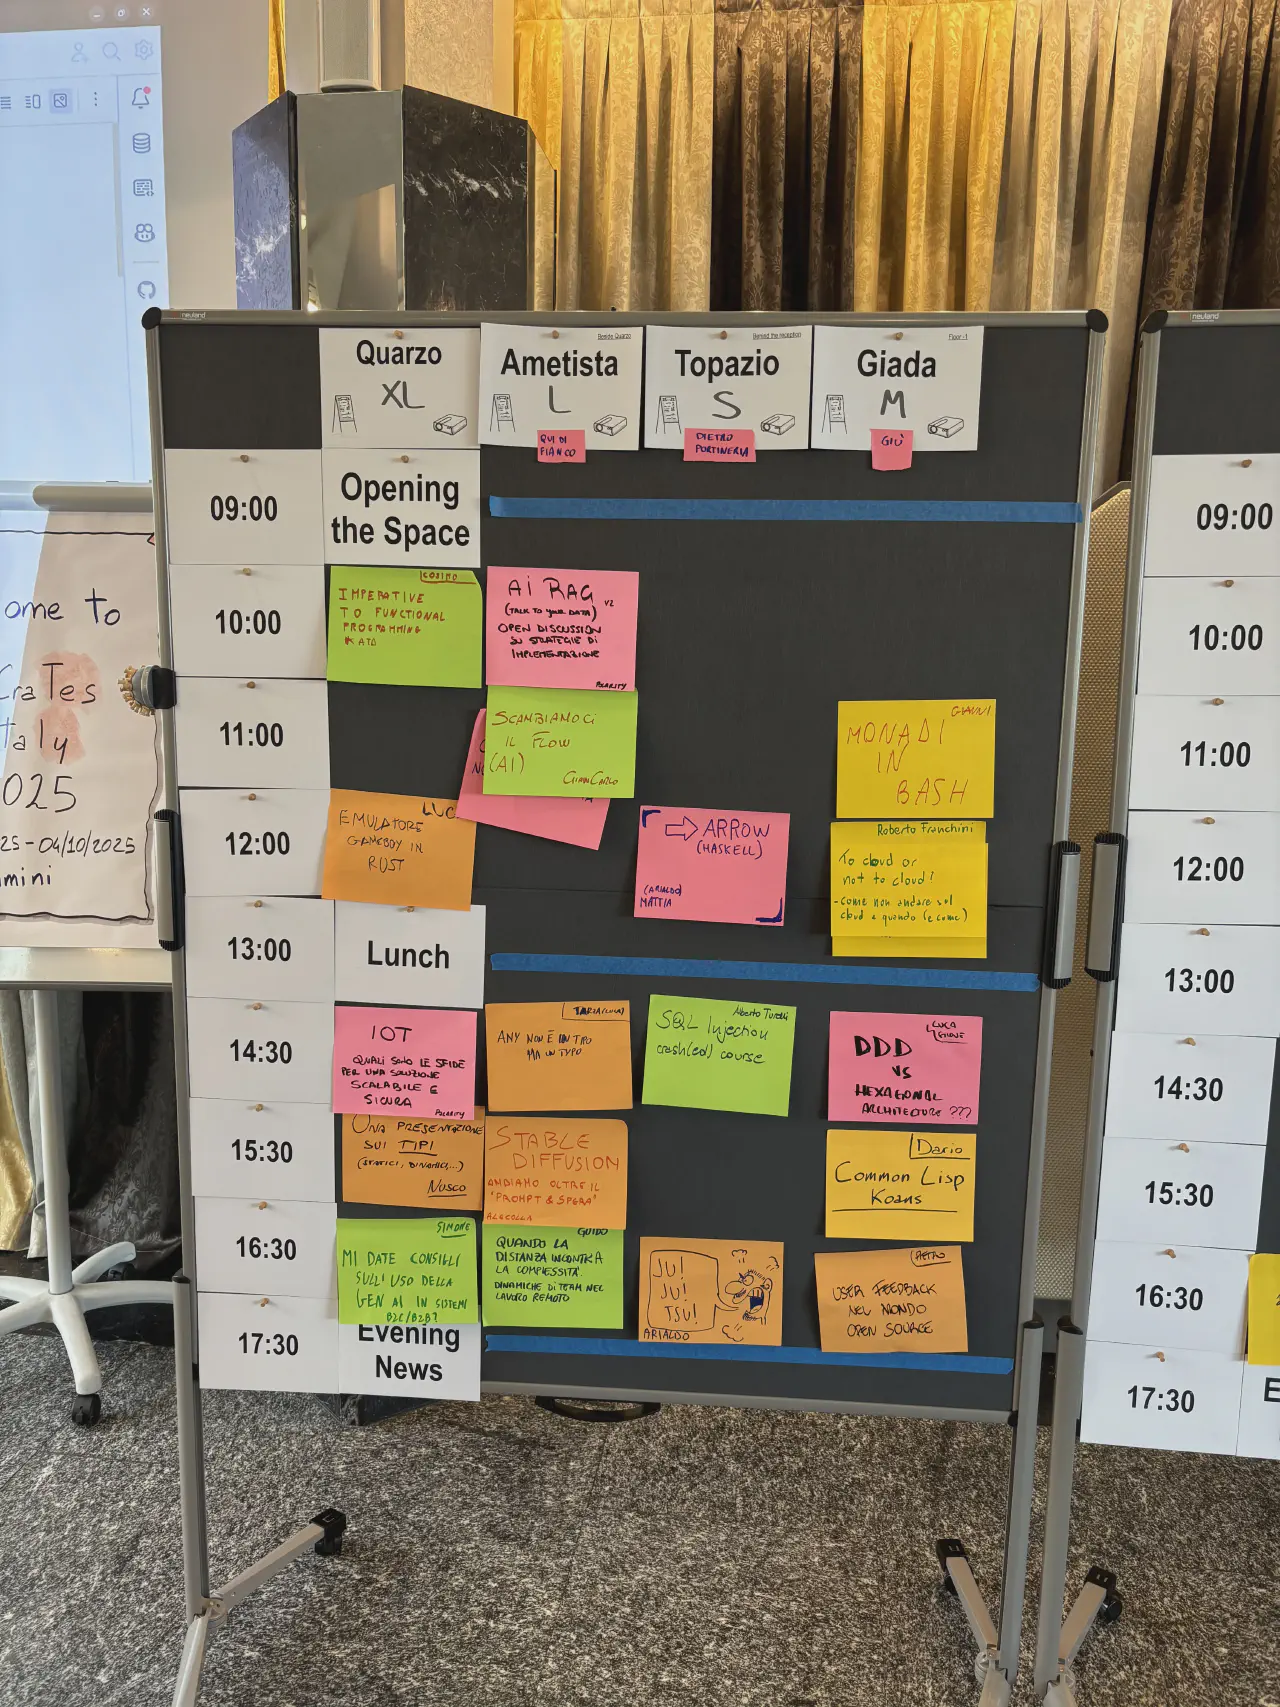 neuland
neuland
Quarzo
XL
Beside Quarzo
Ametista
L
QUI DI
FIANCO
Behind the reception
Topazio
S
DIETRO
PORTINERIA
Floor -1
Giada
M
GIÙ
09:00
Opening
the Space
10:00
COSIMO
IMPERATIVE
TO FUNCTIONAL
PROGRAMMING
KATA
AI RAG V2
(TALK TO YOUR DATA)
OPEN DISCUSSION
SU STRATEGIE DI
IMPLEMENTAZIONE
POLARITY
11:00
SCAMBIAMOCI
IL FLOW
(AI)
GIANCARLO
GIANNI
MONADI
IN
BASH
12:00
LUC
EMULATORE
GAMEBOY IN
RUST
⇨ ARROW
(HASKELL)
(ARIALDO)
MATTIA
Roberto Franchini
To cloud or
not to cloud?
- come non andare sul
cloud e quando (e come)
13:00
Lunch
14:30
IOT
QUALI SONO LE SFIDE
PER UNA SOLUZIONE
SCALABILE E
SICURA
POLARITY
ANY NON È UN TIPO
MA UN TYPO
SQL Injection
crash(ed) course
LUCA
DDD
VS
HEXAGONAL
ARCHITECTURE ???
15:30
UNA PRESENTAZIONE
SUI TIPI
(STATICI, DINAMICI,...)
NUSCO
STABLE
DIFFUSION
ANDIAMO OLTRE IL
"PROMPT & SPERA"
ALECOLLA
Dario
Common Lisp
Koans
16:30
SIMONE
MI DATE CONSIGLI
SULL'USO DELLA
GEN AI IN SISTEMI
B2C/B2B?
GUIDO
QUANDO LA
DISTANZA INCONTRA
LA COMPLESSITÀ.
DINAMICHE DI TEAM NEL
LAVORO REMOTO
JU!
JU!
TSU!
ARIALDO
PIETRO
USER FEEDBACK
NEL MONDO
OPEN SOURCE
17:30
Evening
News
ome to
CraTes
taly
025
25-04/10/2025
mini
09:00
10:00
11:00
12:00
13:00
14:30
15:30
16:30
17:30
E